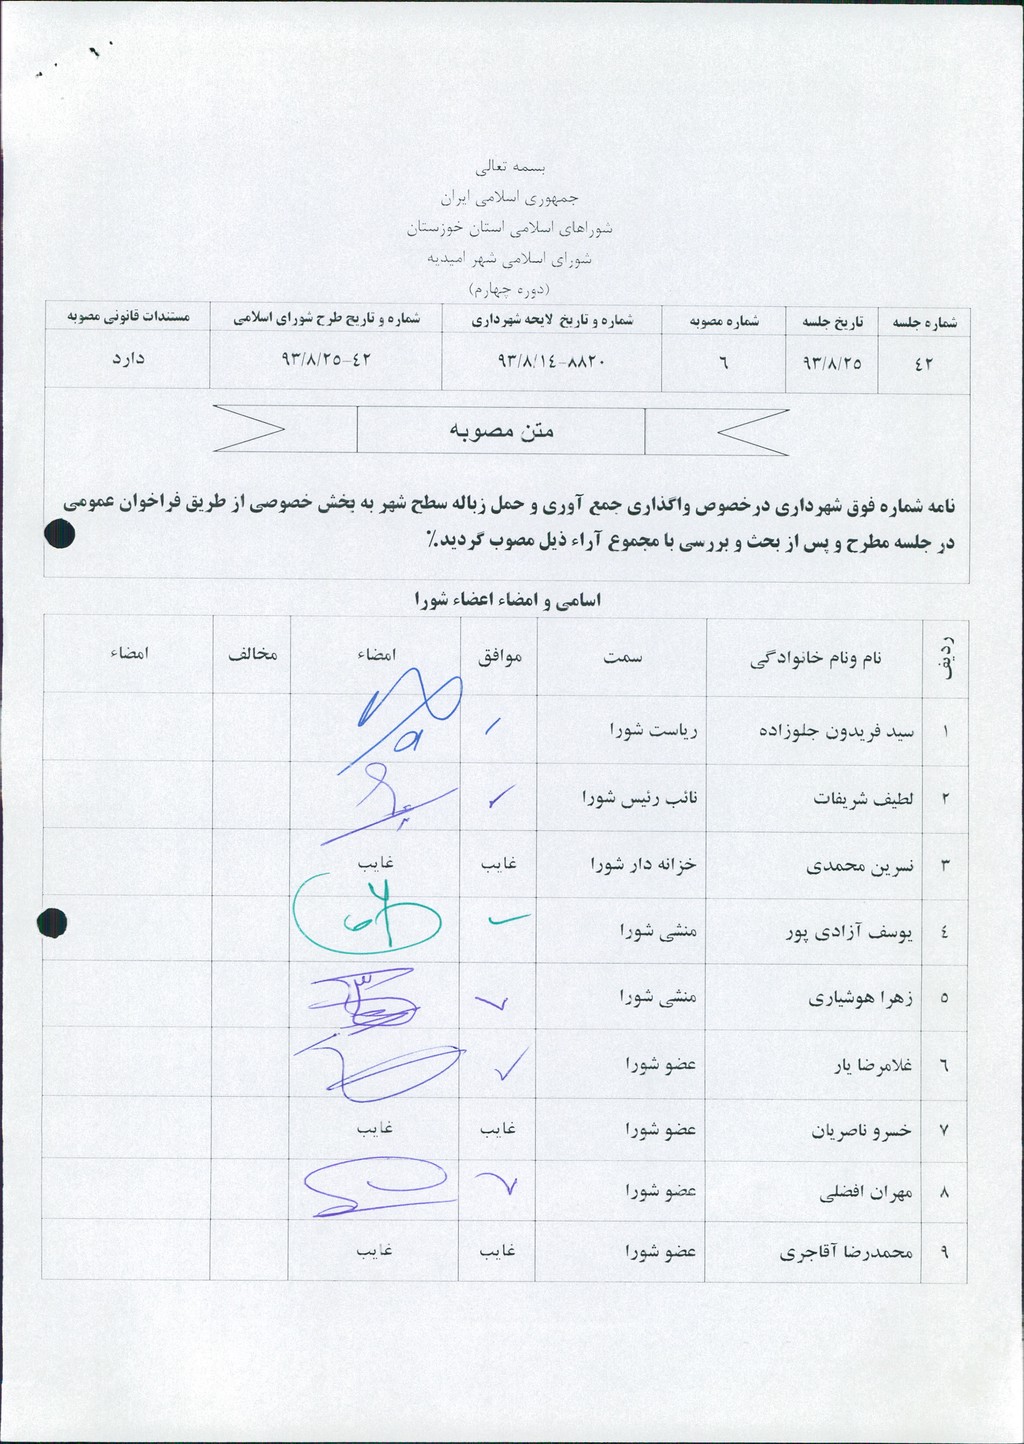 بسمه تعالی
جمهوری اسلامی ایران
شوراهای اسلامی استان خوزستان
شورای اسلامی شهر امیدیه
(دوره چهارم)
شماره جلسه تاریخ جلسه شماره مصوبه شماره و تاریخ لایحه شهرداری شماره و تاریخ طرح شورای اسلامی مستندات قانونی مصوبه
٤٢ ٩٣/٨/٢٥ ٦ ٨٨٢٠-٩٣/٨/١٤ ٤٢-٩٣/٨/٢٥ دارد
متن مصوبه
نامه شماره فوق شهرداری درخصوص واگذاری جمع آوری و حمل زباله سطح شهر به بخش خصوصی از طریق فراخوان عمومی
در جلسه مطرح و پس از بحث و بررسی با مجموع آراء ذیل مصوب گردید.٪
اسامی و امضاء اعضاء شورا
ردیف نام ونام خانوادگی سمت موافق امضاء مخالف امضاء
١ سید فریدون جلوزاده ریاست شورا
٢ لطیف شریفات نائب رئیس شورا
٣ نسرین محمدی خزانه دار شورا غایب غایب
٤ یوسف آزادی پور منشی شورا
٥ زهرا هوشیاری منشی شورا
٦ غلامرضا یار عضو شورا
٧ خسرو ناصریان عضو شورا غایب غایب
٨ مهران افضلی عضو شورا
٩ محمدرضا آقاجری عضو شورا غایب غایب